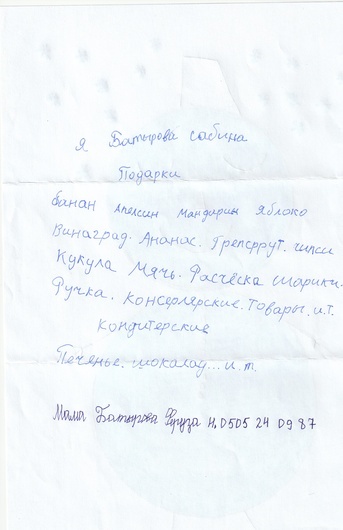 я Батырова сабина
Подарки
банан апелсин мандарин яблоко
Винаград. Ананас. Грепсррут. чипси
Кукула Мячь. Расчёска шарики.
Ручка. Консерлярские. Товары. и.т.
Кондитерские
Печенье. шокалад... и.т.
Мама Батырова Феруза Н.0505 24 09 87